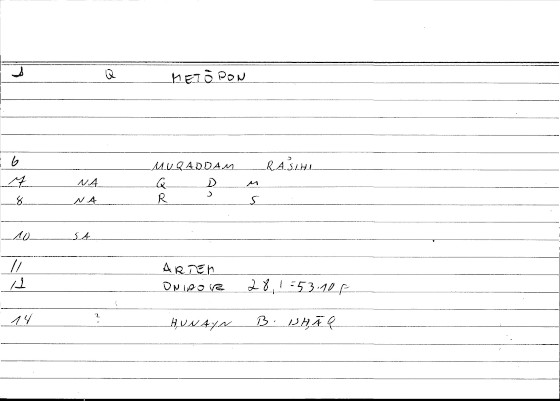 1 Q METŌPON
6 MUQADDAM RAʾSIHI
7 NA Q D M
8 NA R ʾ S
10 SA
11 ARTEM
12 ONIROCR 28,1 = 53.10 F
14 ? ḤUNAYN B. ISḤĀQ